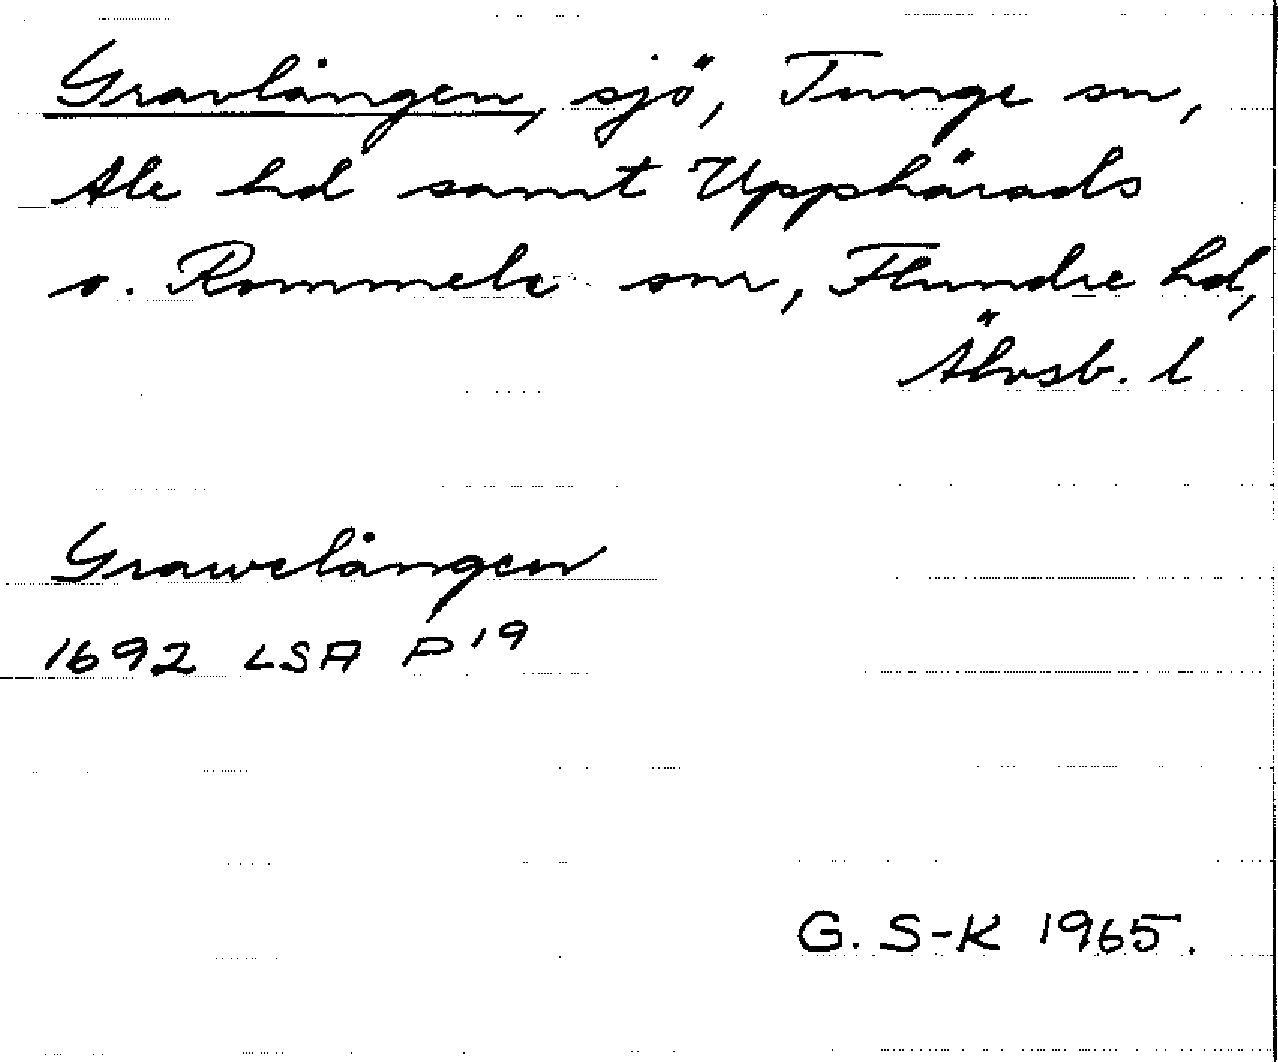 Gravlången, sjö, Tunge sn,
Ale hd samt Upphärads
o. Rommele snr, Flundre hd,
Älvsb. l
Grawelången
1692 LSA P19
G. S-K 1965.